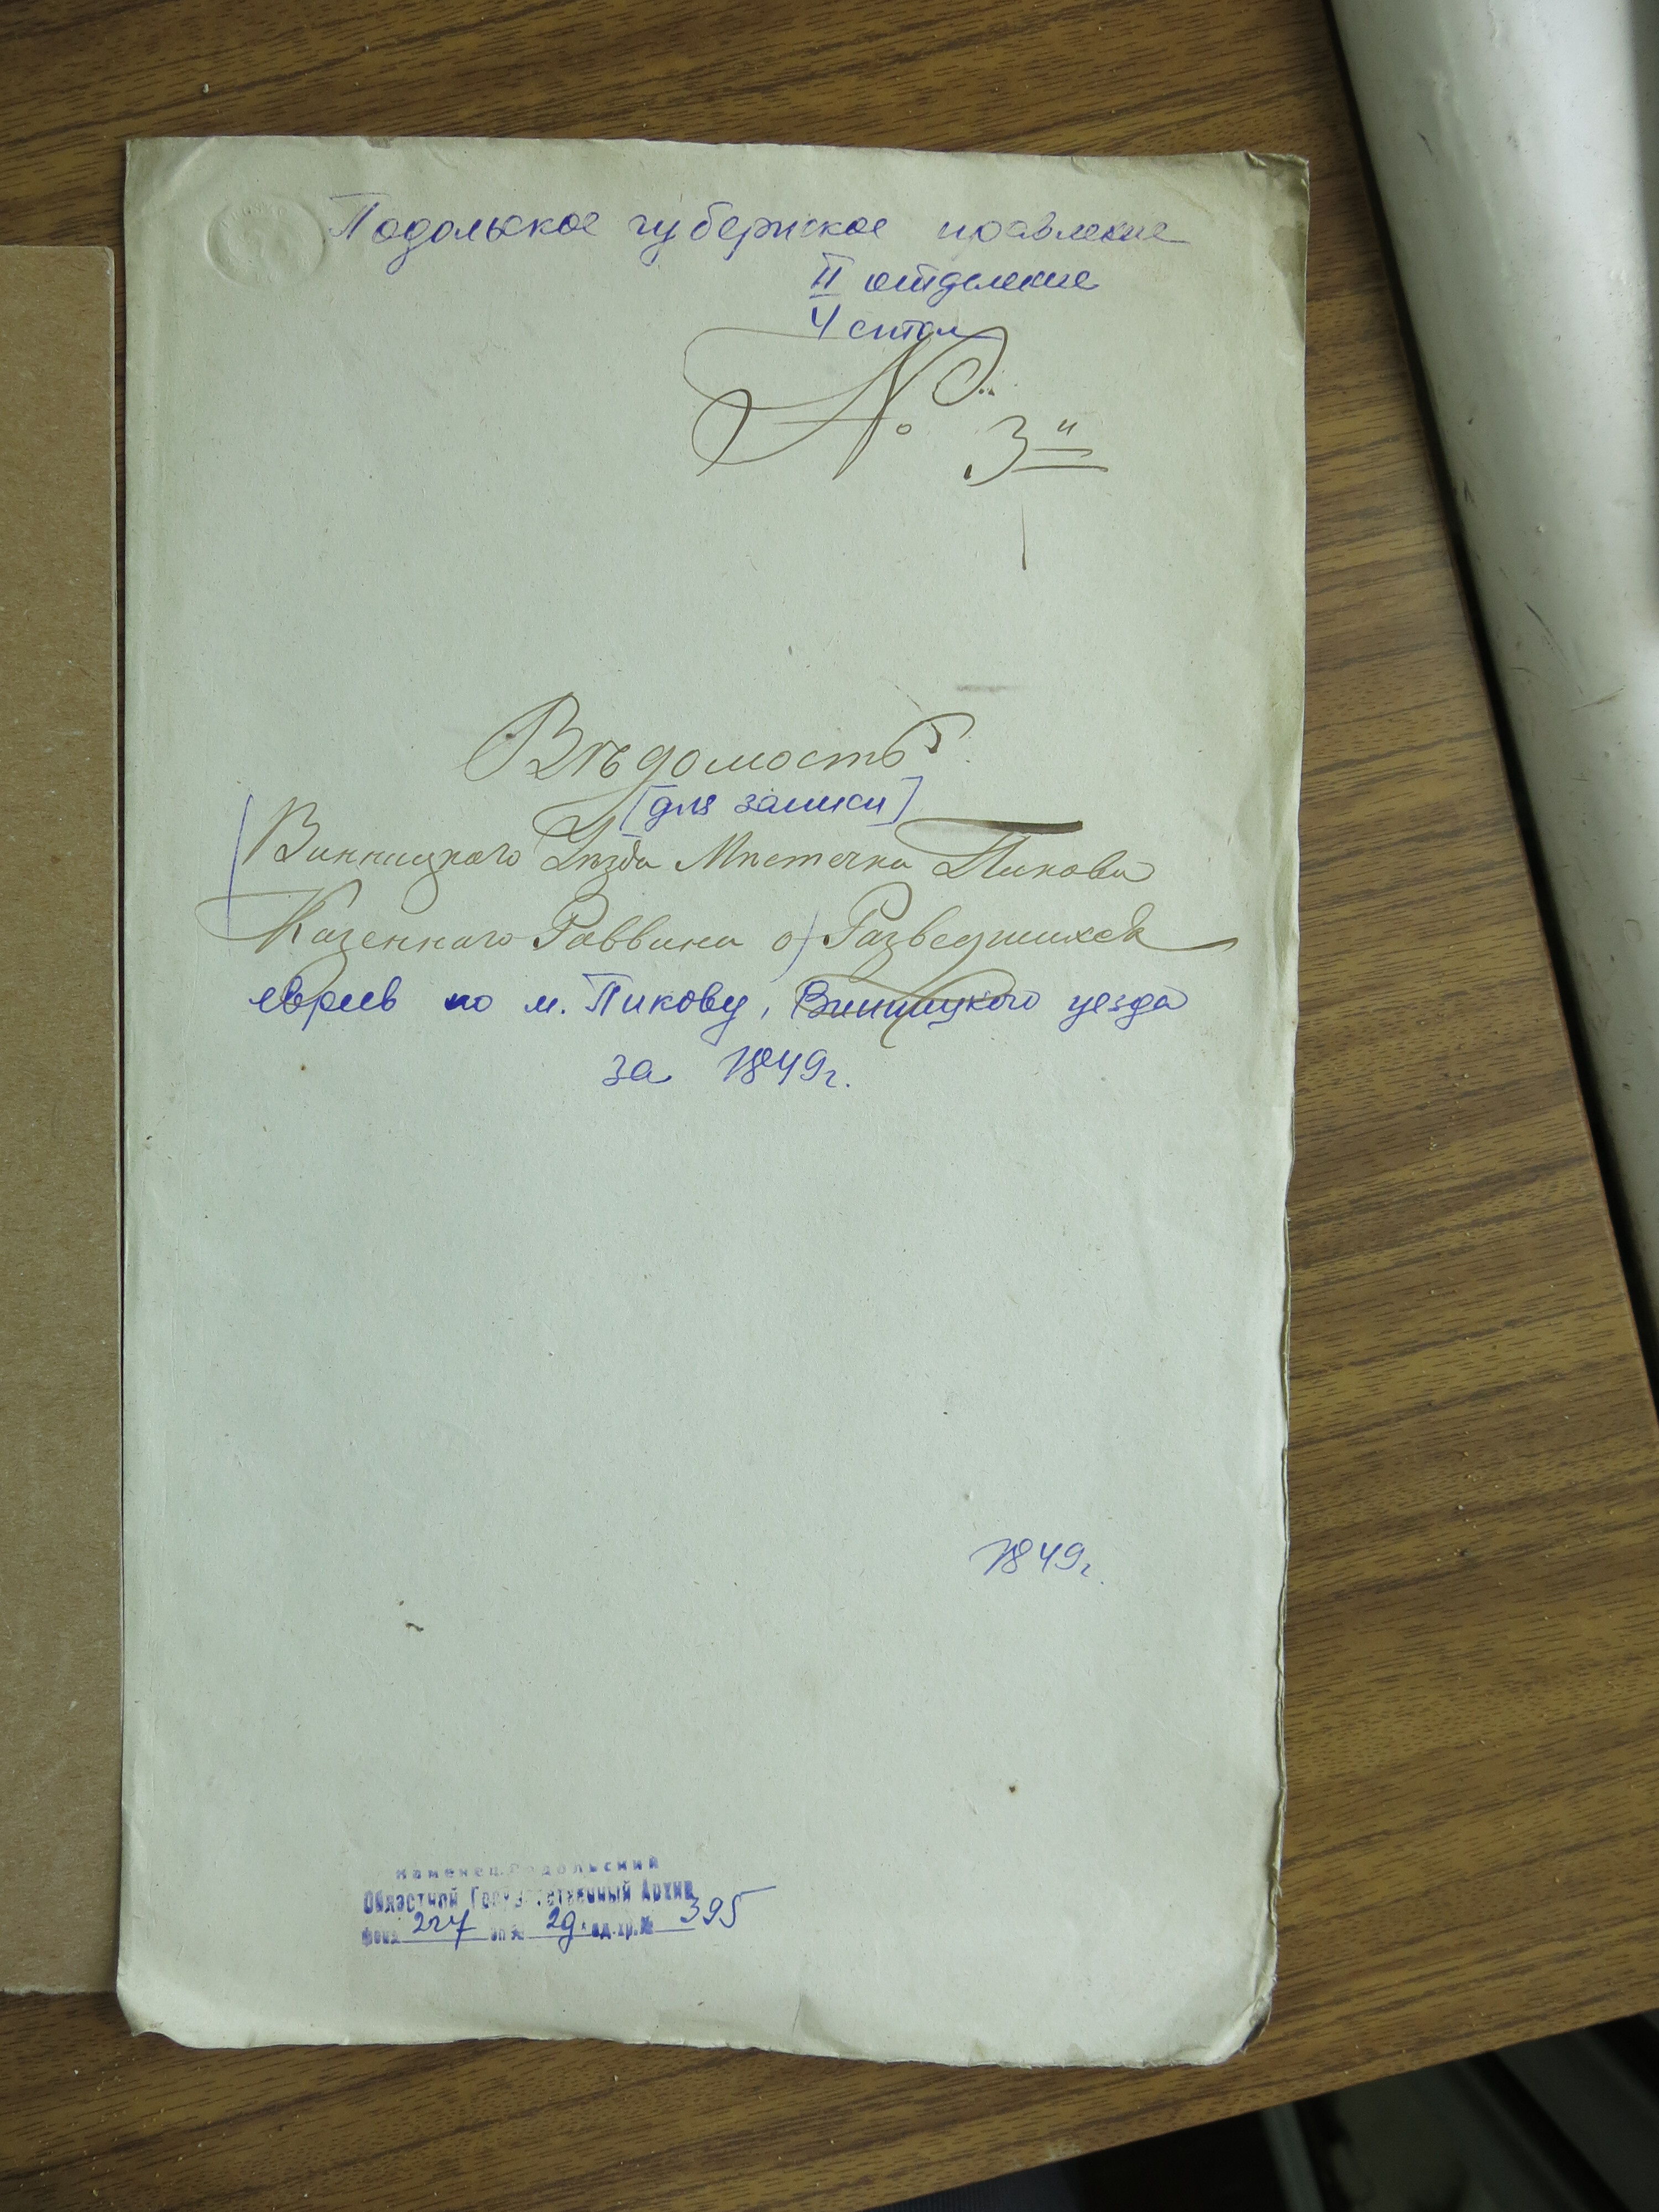 Подольское губернское правление
II отделение
4 стол
№ 3й
Вѣдомость
[для записи]
Винницкаго Уѣзда Мѣстечка Пикова
Казеннаго Раввина о) Разведшихся
евреев по м. Пикову, Винницкого уезда
за 1849г.
1849г.
Каменец-Подольский
Областной Государственный Архив
фонд 227 оп № 2д ед.хр.№ 395